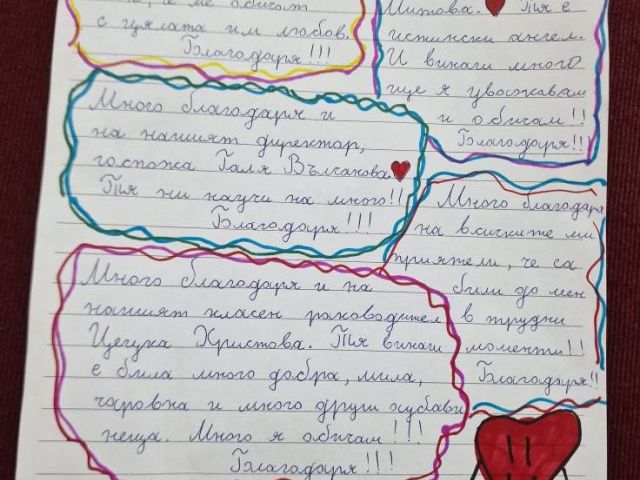 с цялата им любов.
Благодаря!!!
Митова. Тя е
истински ангел.
И винаги много
ще я уважавам
и обичам!!
Благодаря!!
Много благодаря и
на нашият директор,
госпожа Галя Вълчанова
Тя ни научи на много!!
Благодаря!!!
Много благодаря
на всичките ми
приятели, че са
били до мен
в трудни
моменти!!
Благодаря!!
Много благодаря и на
нашият класен раководител
Цецка Христова. Тя винаги
е била много добра, мила,
чаровна и много други хубави
неща. Много я обичам!!!
Благодаря!!!